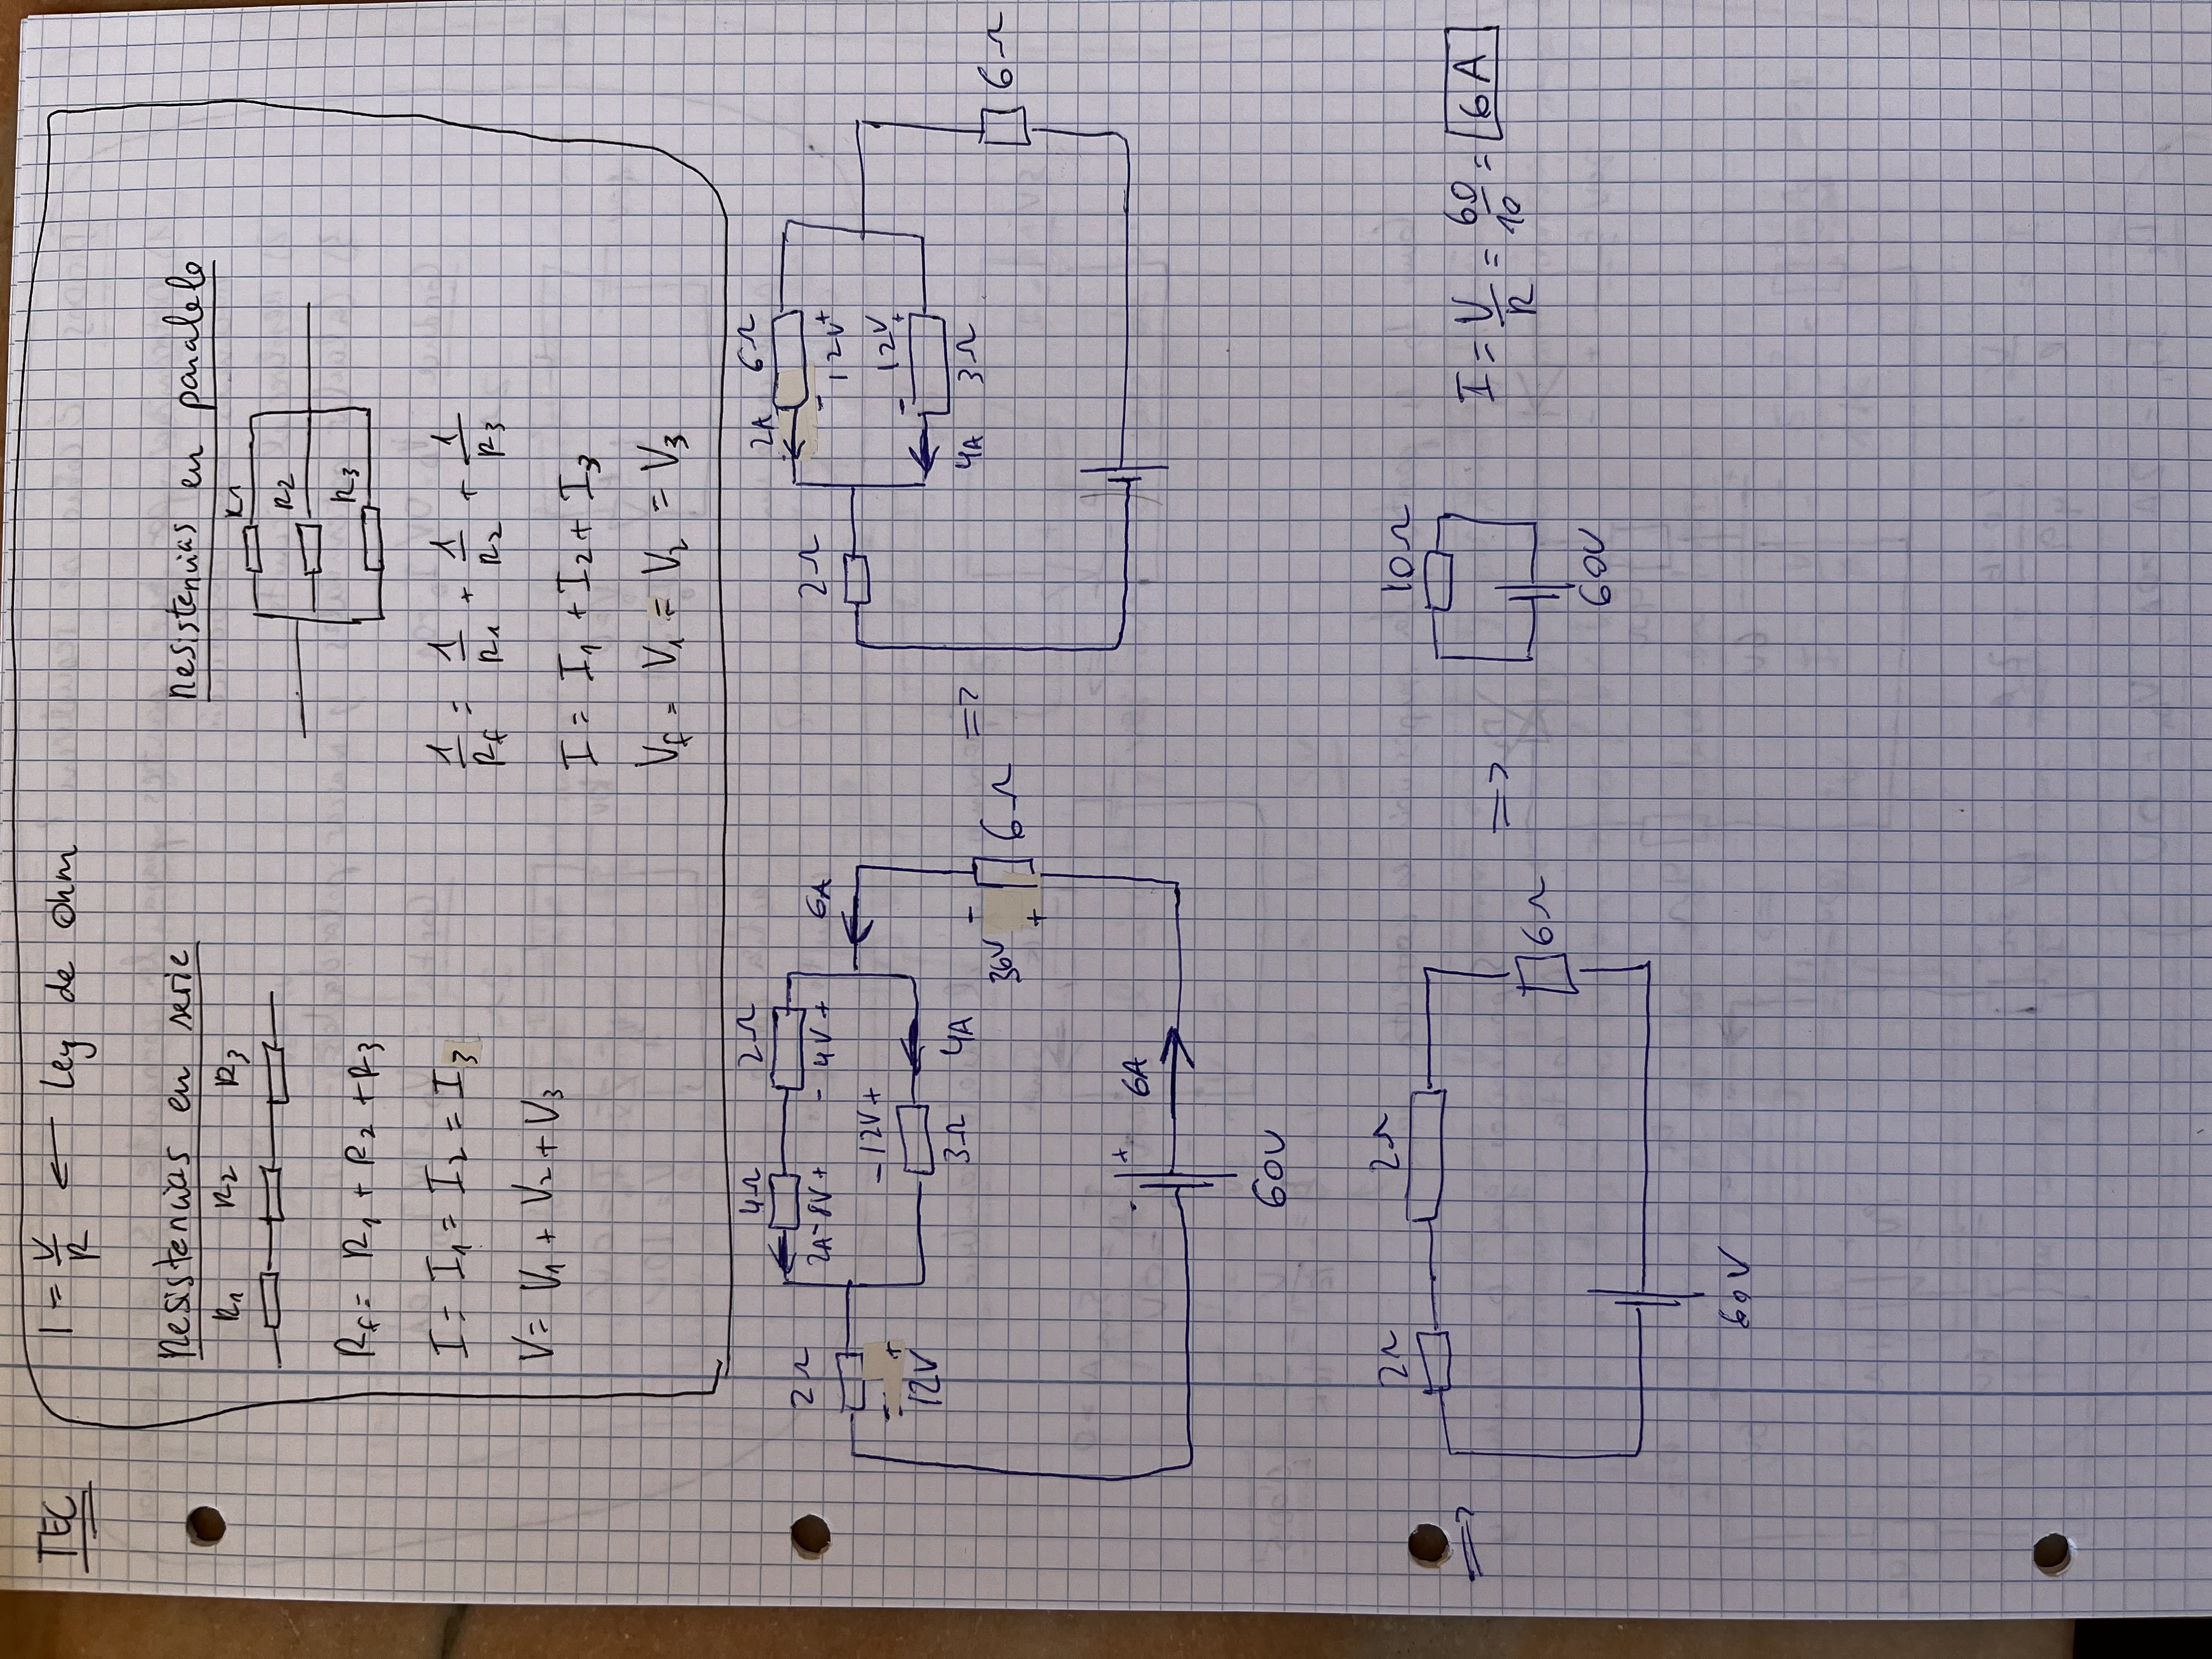 TEC
I = V/R ← Ley de Ohm
Resistencias en serie
R1 R2 R3
Rf = R1 + R2 + R3
I = I1 = I2 = I3
V = V1 + V2 + V3
Resistencias en paralelo
R1
R2
R3
1/Rf = 1/R1 + 1/R2 + 1/R3
I = I1 + I2 + I3
Vf = V1 = V2 = V3
4Ω 2Ω
2Ω
2A - 8V + - 4V + 6A
- 12V +
- +
12V
3Ω 4A
-
36V 6Ω
+
- + 6A
60V
=>
2A 6Ω
2Ω
- 12V +
12V
- +
4A 3Ω
6Ω
=>
2Ω 2Ω
6Ω
60V
=>
10Ω
60V
I = V/R = 60/10 = 6A